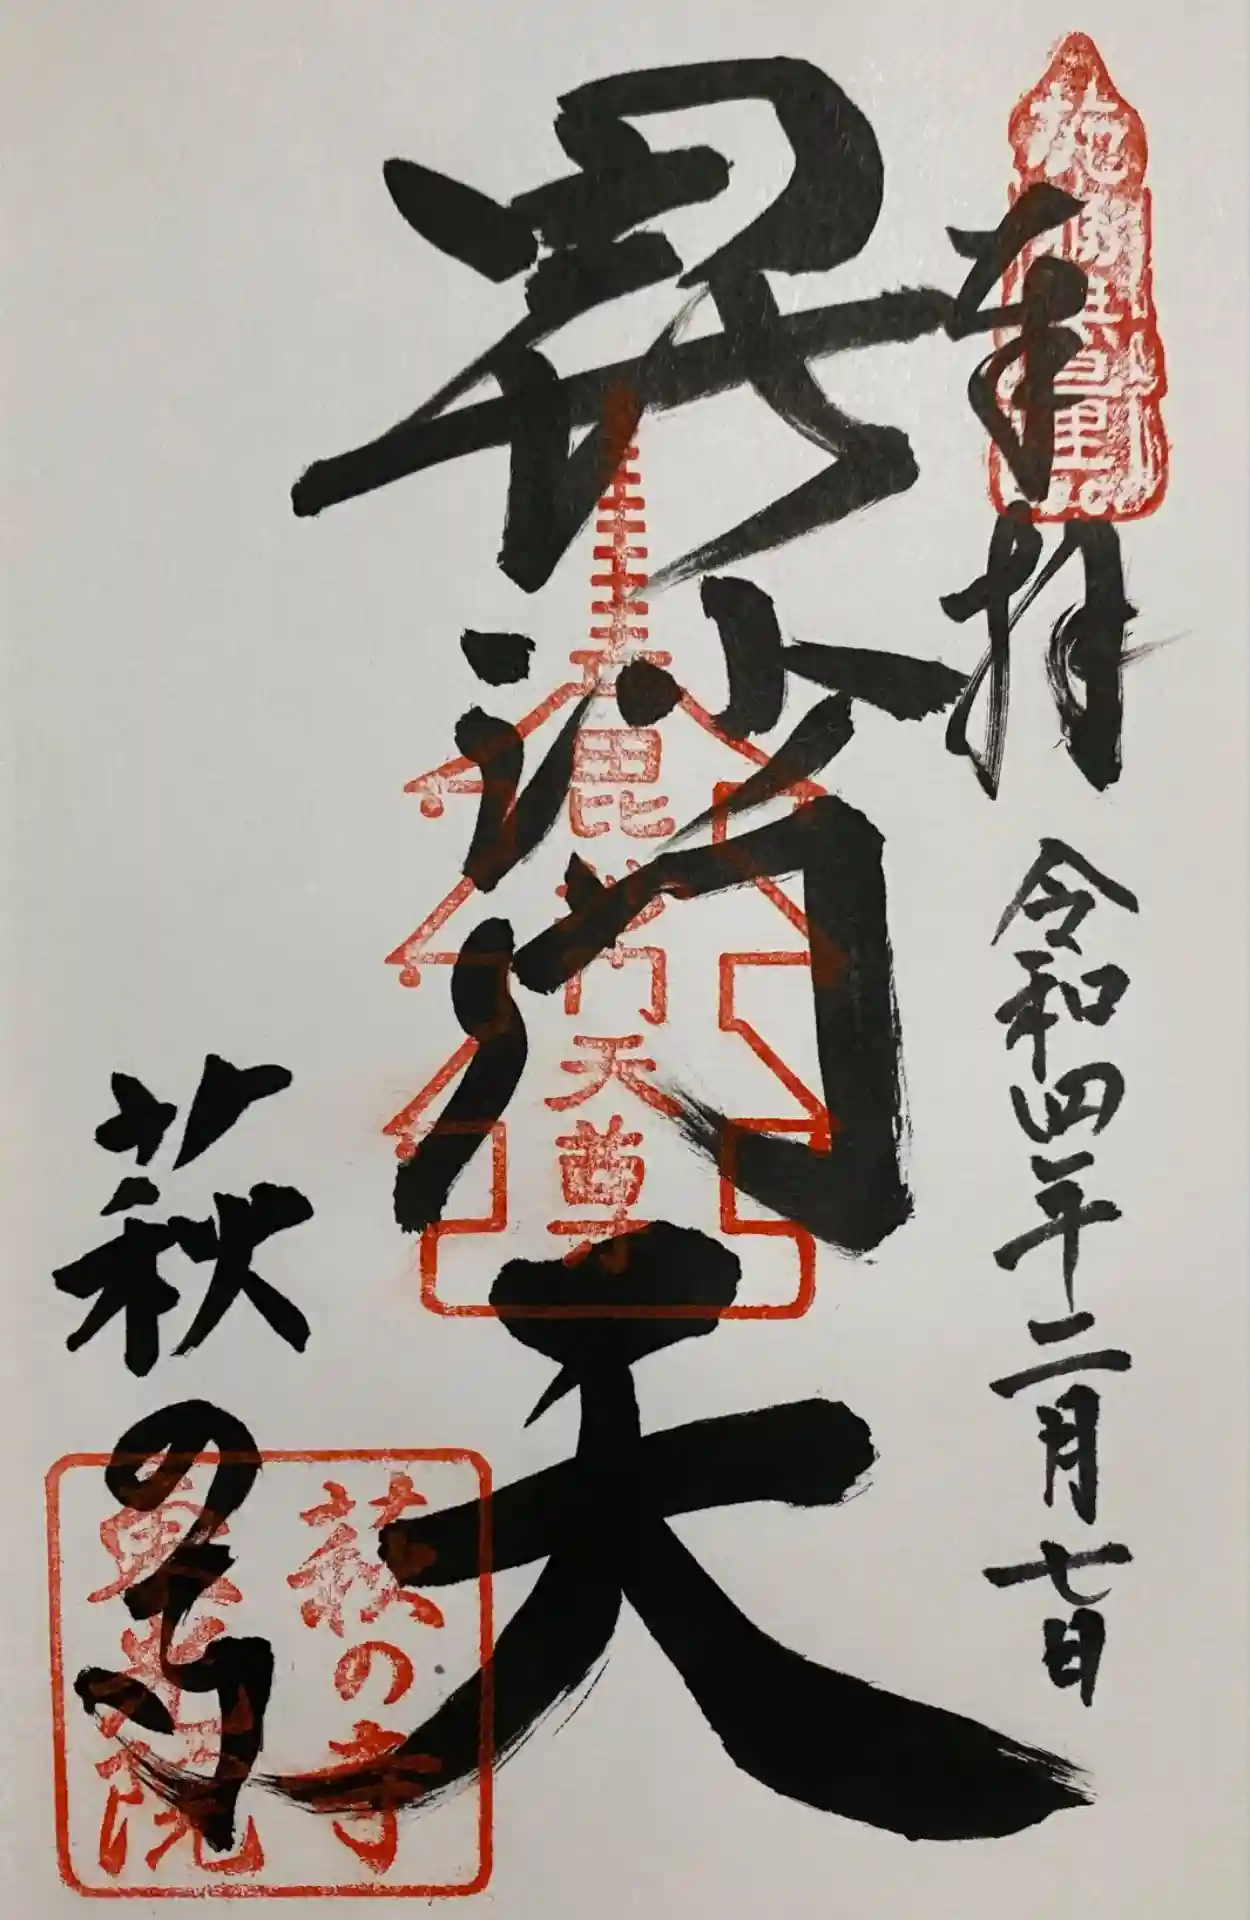 奉拝
令和四年二月七日
毘沙門天
毘沙門天尊
萩の寺
萩の寺
東光院